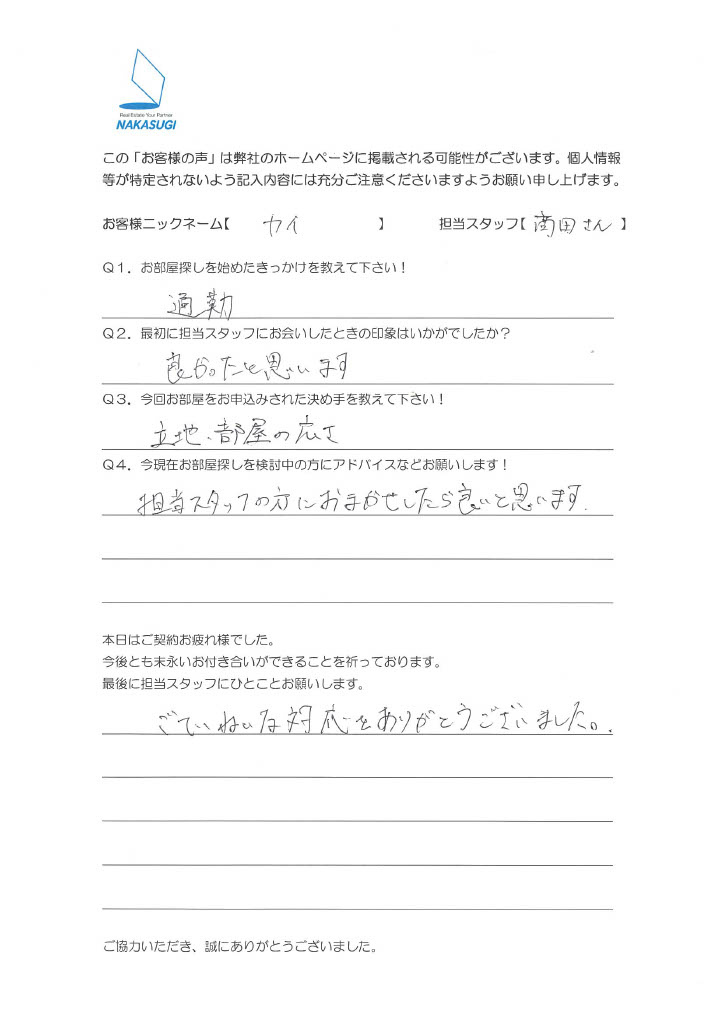 Real Estate Your Partner
NAKASUGI
この「お客様の声」は弊社のホームページに掲載される可能性がございます。個人情報
等が特定されないよう記入内容には充分ご注意くださいますようお願い申し上げます。
お客様ニックネーム【 カイ 】 担当スタッフ【 商田さん 】
Q1．お部屋探しを始めたきっかけを教えて下さい！
通勤
Q2．最初に担当スタッフにお会いしたときの印象はいかがでしたか？
良かったと思います
Q3．今回お部屋をお申込みされた決め手を教えて下さい！
立地、部屋の広さ
Q4．今現在お部屋探しを検討中の方にアドバイスなどお願いします！
担当スタッフの方におまかせしたら良いと思います.
本日はご契約お疲れ様でした。
今後とも末永いお付き合いができることを祈っております。
最後に担当スタッフにひとことお願いします。
ごていねいな対応をありがとうございました。
ご協力いただき、誠にありがとうございました。